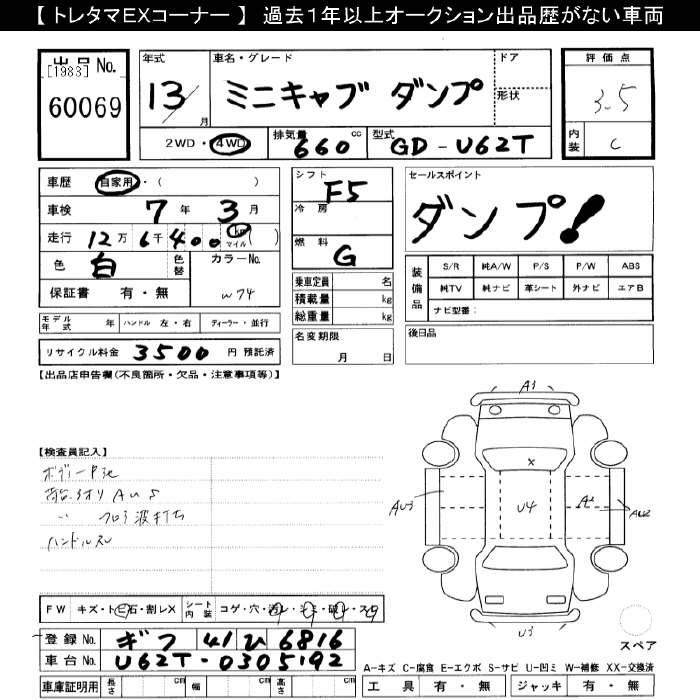 【 トレタマEXコーナー 】 過去1年以上オークション出品歴がない車両
出品 No.
[1983]
60069
年式
13/
月
車名・グレード
ミニキャブ ダンプ
ドア
形状
評価点
3.5
内装 C
2WD・4WD
排気量 660 cc
型式 GD-U62T
車歴 自家用・( )
車検 7年 3月
走行 12万 6千 400 km マイル ( )
色 白 色替
カラーNo.
W74
保証書 有・無
シフト F5
冷房
燃料 G
乗車定員 名
積載量 kg
総重量 kg
セールスポイント
ダンプ!
装備品
S/R 純A/W P/S P/W ABS
純TV 純ナビ 革シート 外ナビ エアB
ナビ型番:
モデル年式 年 ハンドル 左・右 ディーラー・並行
リサイクル料金 3500 円 預託済
名変期限
月 日
後日品
【出品店申告欄(不良箇所・欠品・注意事項等)】
【検査員記入】
ボデー
AUS
フロア波打ち
ハンドルスレ
A1
X
AU3
U4
A2
AU2
U3
スペア
FW キズ・トビ石・割レX
シート内装 コゲ・穴・汚レ・シミ・破レ・スレ
登録 No. ギフ 41 ひ 6816
車台 No. U62T-0305192
A-キズ C-腐食 E-エクボ S-サビ U-凹ミ W-補修 XX-交換済
車庫証明用 長さ cm 幅 cm 高さ cm
工具 有・無 ジャッキ 有・無